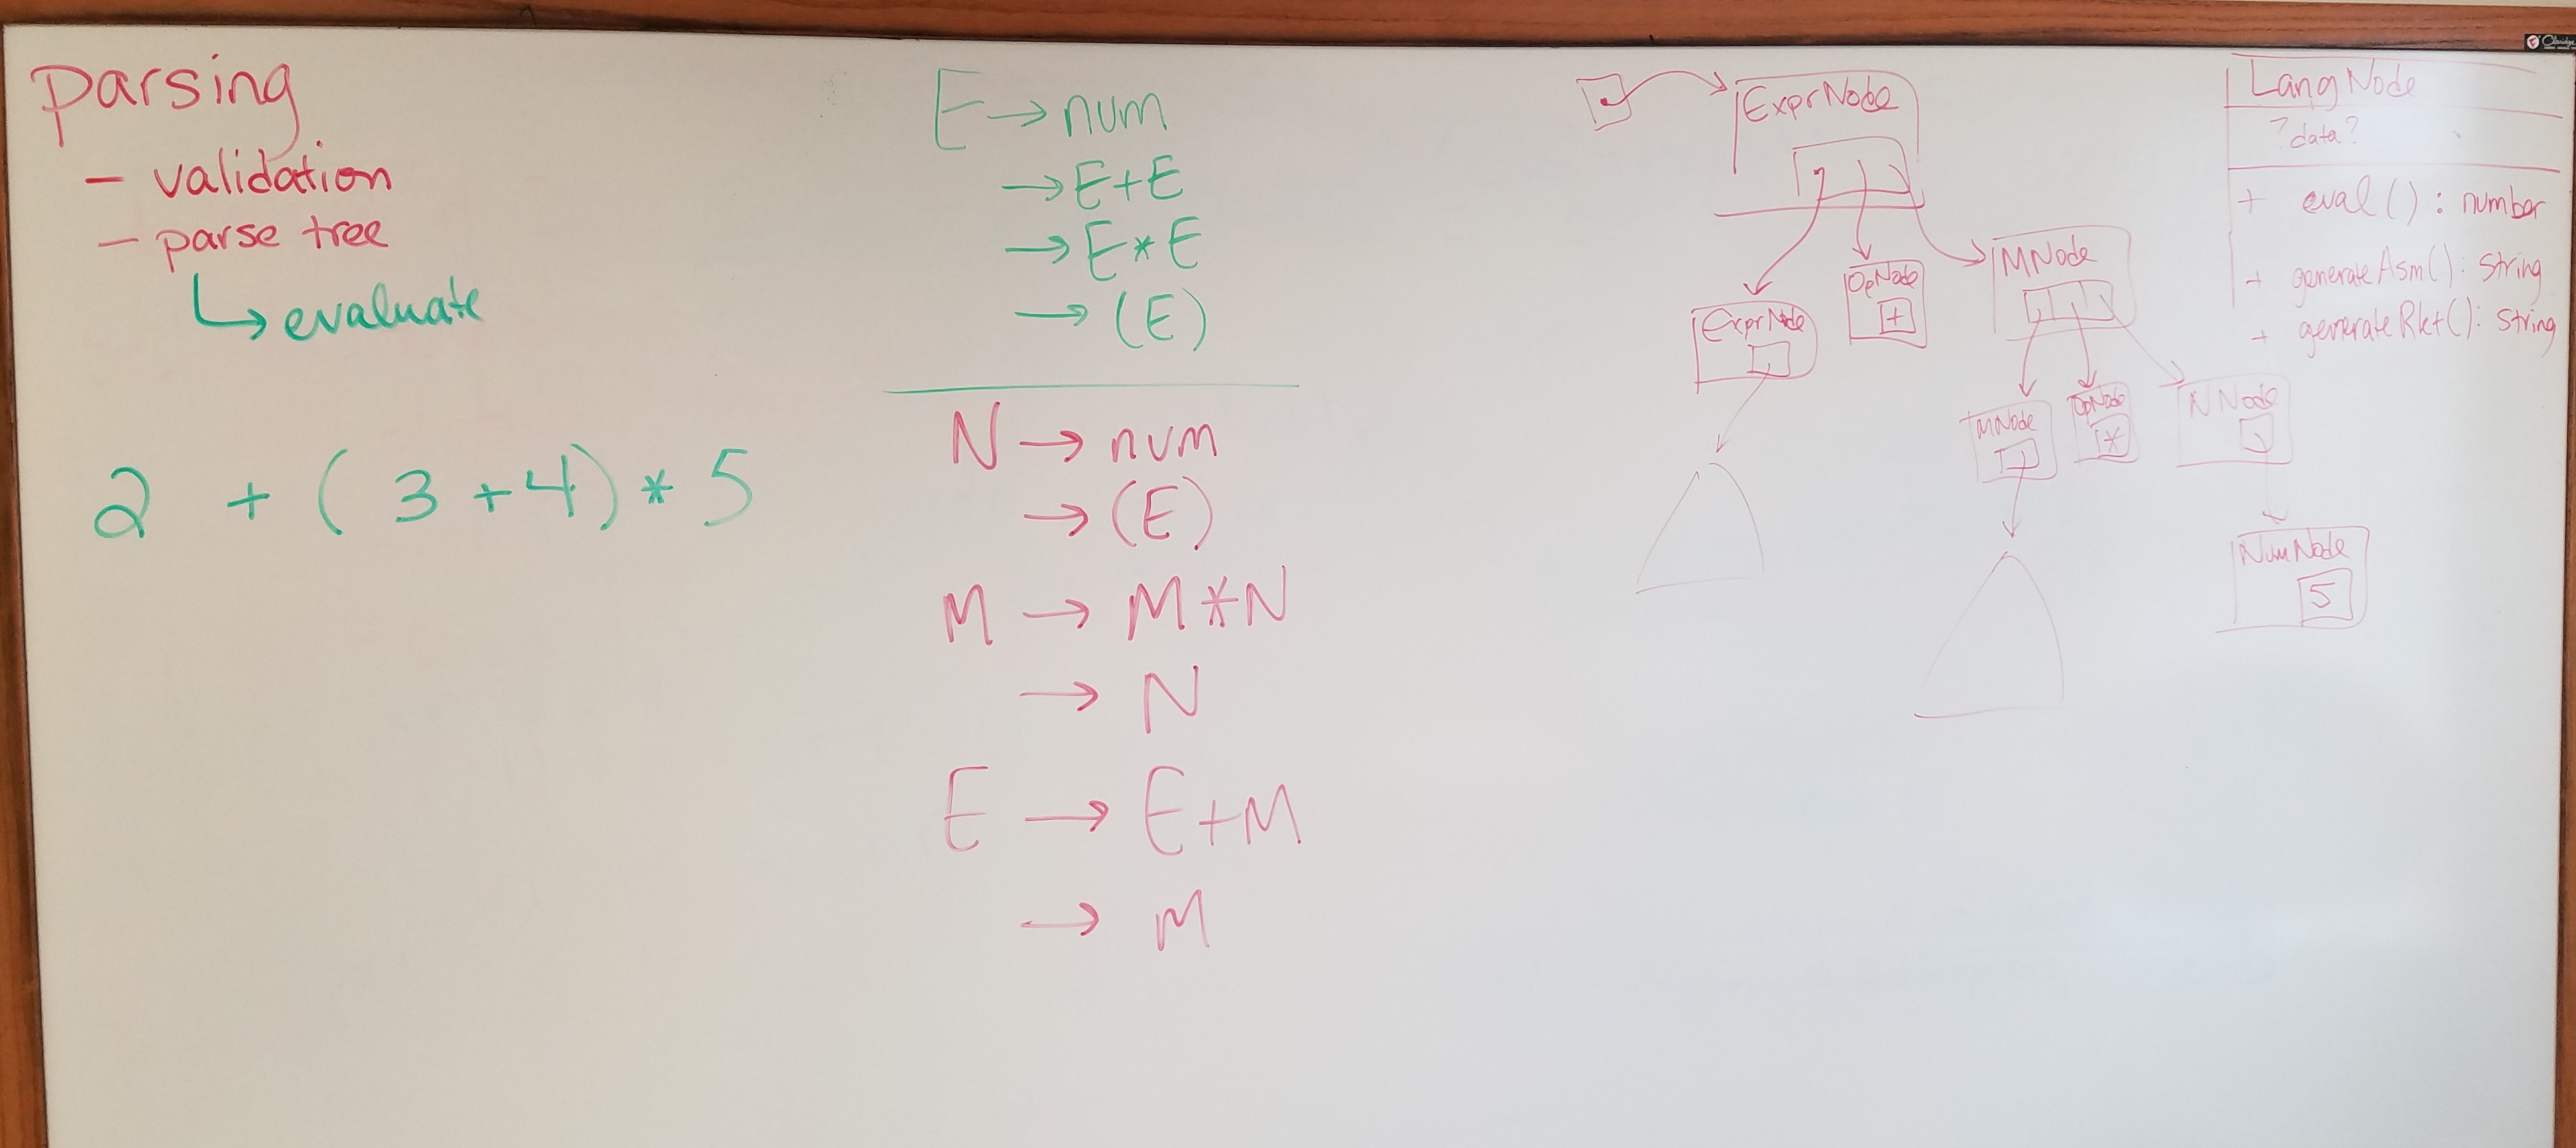 parsing
- validation
- parse tree
↳ evaluate
2 + ( 3 + 4 ) * 5
E → num
→ E + E
→ E * E
→ (E)
N → num
→ (E)
M → M * N
→ N
E → E + M
→ M
ExprNode
ExprNode
OpNode
+
MNode
MNode
OpNode
*
NNode
NumNode
5
LangNode
?data?
+ eval() : number
+ generateAsm() : string
+ generateRkt() : string
Claridge